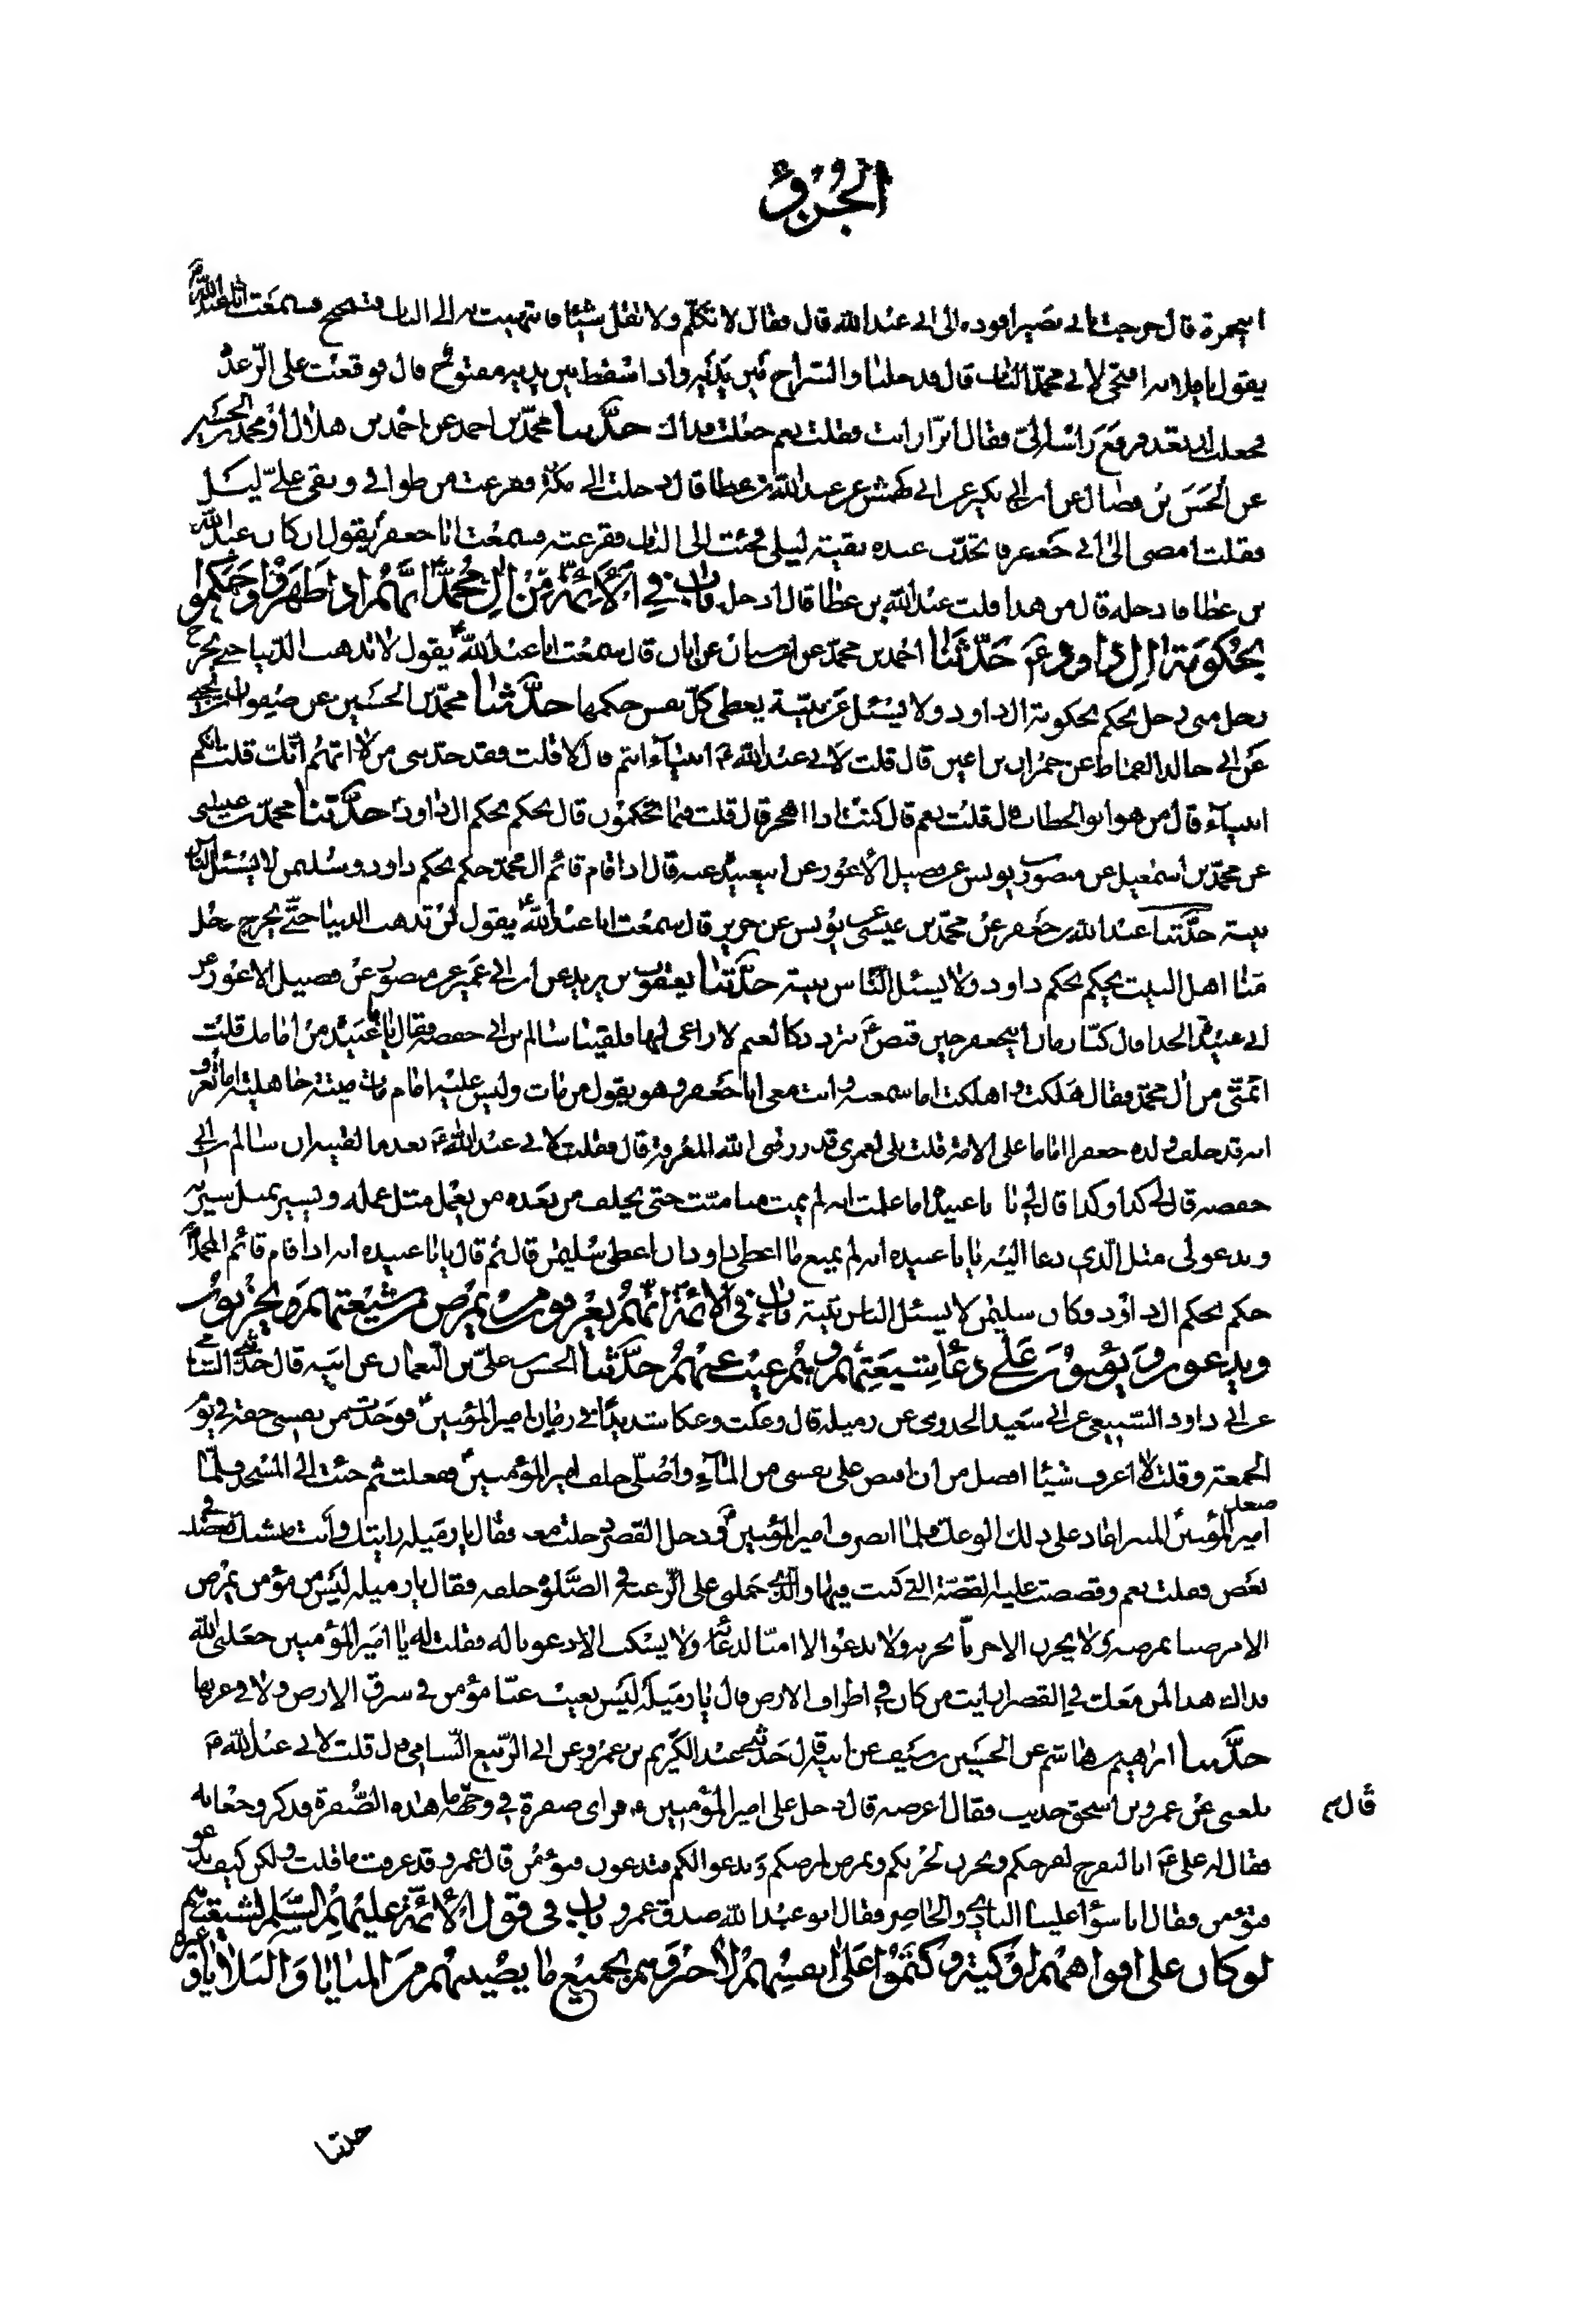 الجزؤ
ابيحمزة قال خرجت بابي بصير اقوده الى ابي عبد الله قال فقال لا تكلم ولا تقل شيئا فانتهيت به الى الباب فتنحنح فسمعت ابا عبد الله ع
يقول يا فلانه افتحى لابي محمد الباب قال فدخلنا والسراج بين يديه واذا سفط بين يديه مفتوح قال فوقعت على الرعدة
فجعلت ارتعد فرفع راسه الى فقال ابزاز انت فقلت نعم جعلت فداك حدثنا محمد بن احمد عن احمد بن هلال او محمد بن الحسين
عن الحسن بن فضال عن ابن ابي بكير عن ابي كهمش عن عبد الله بن عطا قال دخلت الى مكة ففرغت من طوافي وبقى علي ليل
فقلت امضى الى ابي جعفر فاتحدث عنده بقية ليلى فجئت الى الباب فقرعته فسمعت ابا جعفر يقول ان كان عبد الله
بن عطا فادخله قال من هذا قلت عبد الله بن عطا قال ادخل باب في الائمة من ال محمد انهم اذا ظهروا حكموا
بحكومة ال داود ع حدثنا احمد بن محمد عن ابن سنان عن ابان قال سمعت ابا عبد الله ع يقول لا تذهب الدنيا حتى يخرج
رجل منى رجل يحكم بحكومة ال داود ولا يسئل عن بينة يعطى كل نفس حكمها حدثنا محمد بن الحسين عن صفوان بن يحيى
عن ابي خالد القماط عن حمران بن اعين قال قلت لابي عبد الله ع انبياء انتم قال لا قلت فقد حدثنى من لا اتهم انك قلت انكم
انبياء قال من هو ابو الخطاب قال قلت نعم قال كنت اذا اهجر قال قلت فبما تحكمون قال نحكم بحكم ال داود حدثنا محمد بن عيسى
عن محمد بن اسمعيل عن منصور بن يونس عن فضيل الاعور عن ابي عبيدة عنه قال اذا قام قائم ال محمد حكم بحكم داود وسليمن لا يسئل الناس
بينة حدثنا عبد الله بن جعفر عن محمد بن عيسى عن يونس عن حريز قال سمعت ابا عبد الله ع يقول لن تذهب الدنيا حتى يخرج رجل
منا اهل البيت يحكم بحكم داود ولا يسئل الناس بينة حدثنا يعقوب بن يزيد عن ابن ابي عمير عن منصور عن فضيل الاعور عن
ابي عبيدة الحذا قال كنا زمان ابيجعفر حين قبض ع نتردد كالغنم لا راعى لها فلقينا سالم بن ابي حفصه فقال يا با عبيده من امامك قلت
ائمتى من ال محمد فقال هلكت واهلكت اما سمعت وانت معى ابا جعفر وهو يقول من مات وليس عليه امام مات ميتة جاهلية
انه قد خلف ولده جعفرا اماما على الامة قلت بلى لعمرى قد رزقنى الله المعرفة قال فقلت لابي عبد الله ع بعد ما لقيته ان سالم بن ابي
حفصه قال لى كذا وكذا قال لى يا با عبيدة اما علمت انه لم يمت منا ميت حتى يخلف من بعده من يعمل مثل عمله ويسير بمثل سيرته
ويدعو لى مثل الذى دعا اليه يا با عبيده انه لم يمنع ما اعطى داود ان اعطى سليمن قال ثم قال يا با عبيده انه اذا قام قائم ال محمد
حكم بحكم ال داود وكان سليمن لا يسئل الناس بينة باب في الائمة انهم يعرفون من يمرض من شيعتهم ويحزنون
ويدعون ويؤمنون على دعا شيعتهم وهم غيب عنهم حدثنا الحسن بن علي بن النعمان عن ابيه قال حدثنى الشامي
عن ابي داود السبيعي عن ابي سعيد الخدرى عن رميله قال وعكت وعكا شديدا في زمان امير المؤمنين فوجدت من نفسى خفة في يوم
الجمعة وقلت لا اعرف شيئا افضل من ان افيض على نفسى من الماء واصلى خلف امير المؤمنين ففعلت ثم جئت الى المسجد فلما
صعد
امير المؤمنين المنبر اعاد على ذلك الوعك فلما انصرف امير المؤمنين ودخل القصر دخلت معه فقال يا رميله رايتك وانت متشبك بعضك في
بعض فقلت نعم وقصصت عليه القصة التي كنت فيها والذى حملنى على الرغبة في الصلوة خلفه فقال يا رميله ليس من مؤمن يمرض
الا مرضنا بمرضه ولا يحزن الا حزنا بحزنه ولا يدعوا الا امنا لدعائه ولا يسكت الا دعونا له فقلت له يا امير المؤمنين جعلنى الله
فداك هذا لمن معك في القصر ارايت من كان في اطراف الارض قال يا رميله ليس يغيب عنا مؤمن في شرق الارض ولا في غربها
حدثنا ابراهيم بن هاشم عن الحسين بن سيف عن ابيه قال حدثنى عبد الكريم بن عمرو عن ابي الربيع الشامي قال قلت لابي عبد الله ع
بلغنى عن عمرو بن اسحق حديث فقال اعرضه قال دخل على امير المؤمنين ع فراى صفرة في وجهه قال ما هذه الصفرة فذكر وجعا به
قال م
فقال له علي ع انا لنفرح لفرحكم ونحزن لحزنكم ونمرض لمرضكم وندعوا لكم فتدعون فنؤمن قال عمرو قد عرفت ما قلت ولكن كيف ندعو
فنؤمن فقال انا سواء علينا البادي والحاضر فقال ابو عبد الله صدق عمرو باب في قول الائمة عليهم السلم لشيعتهم
لو كان على افواههم اوكية وكتموا على انفسهم لاخبروهم بجميع ما يصيبهم من المنايا والبلايا وغيره
حدثنا